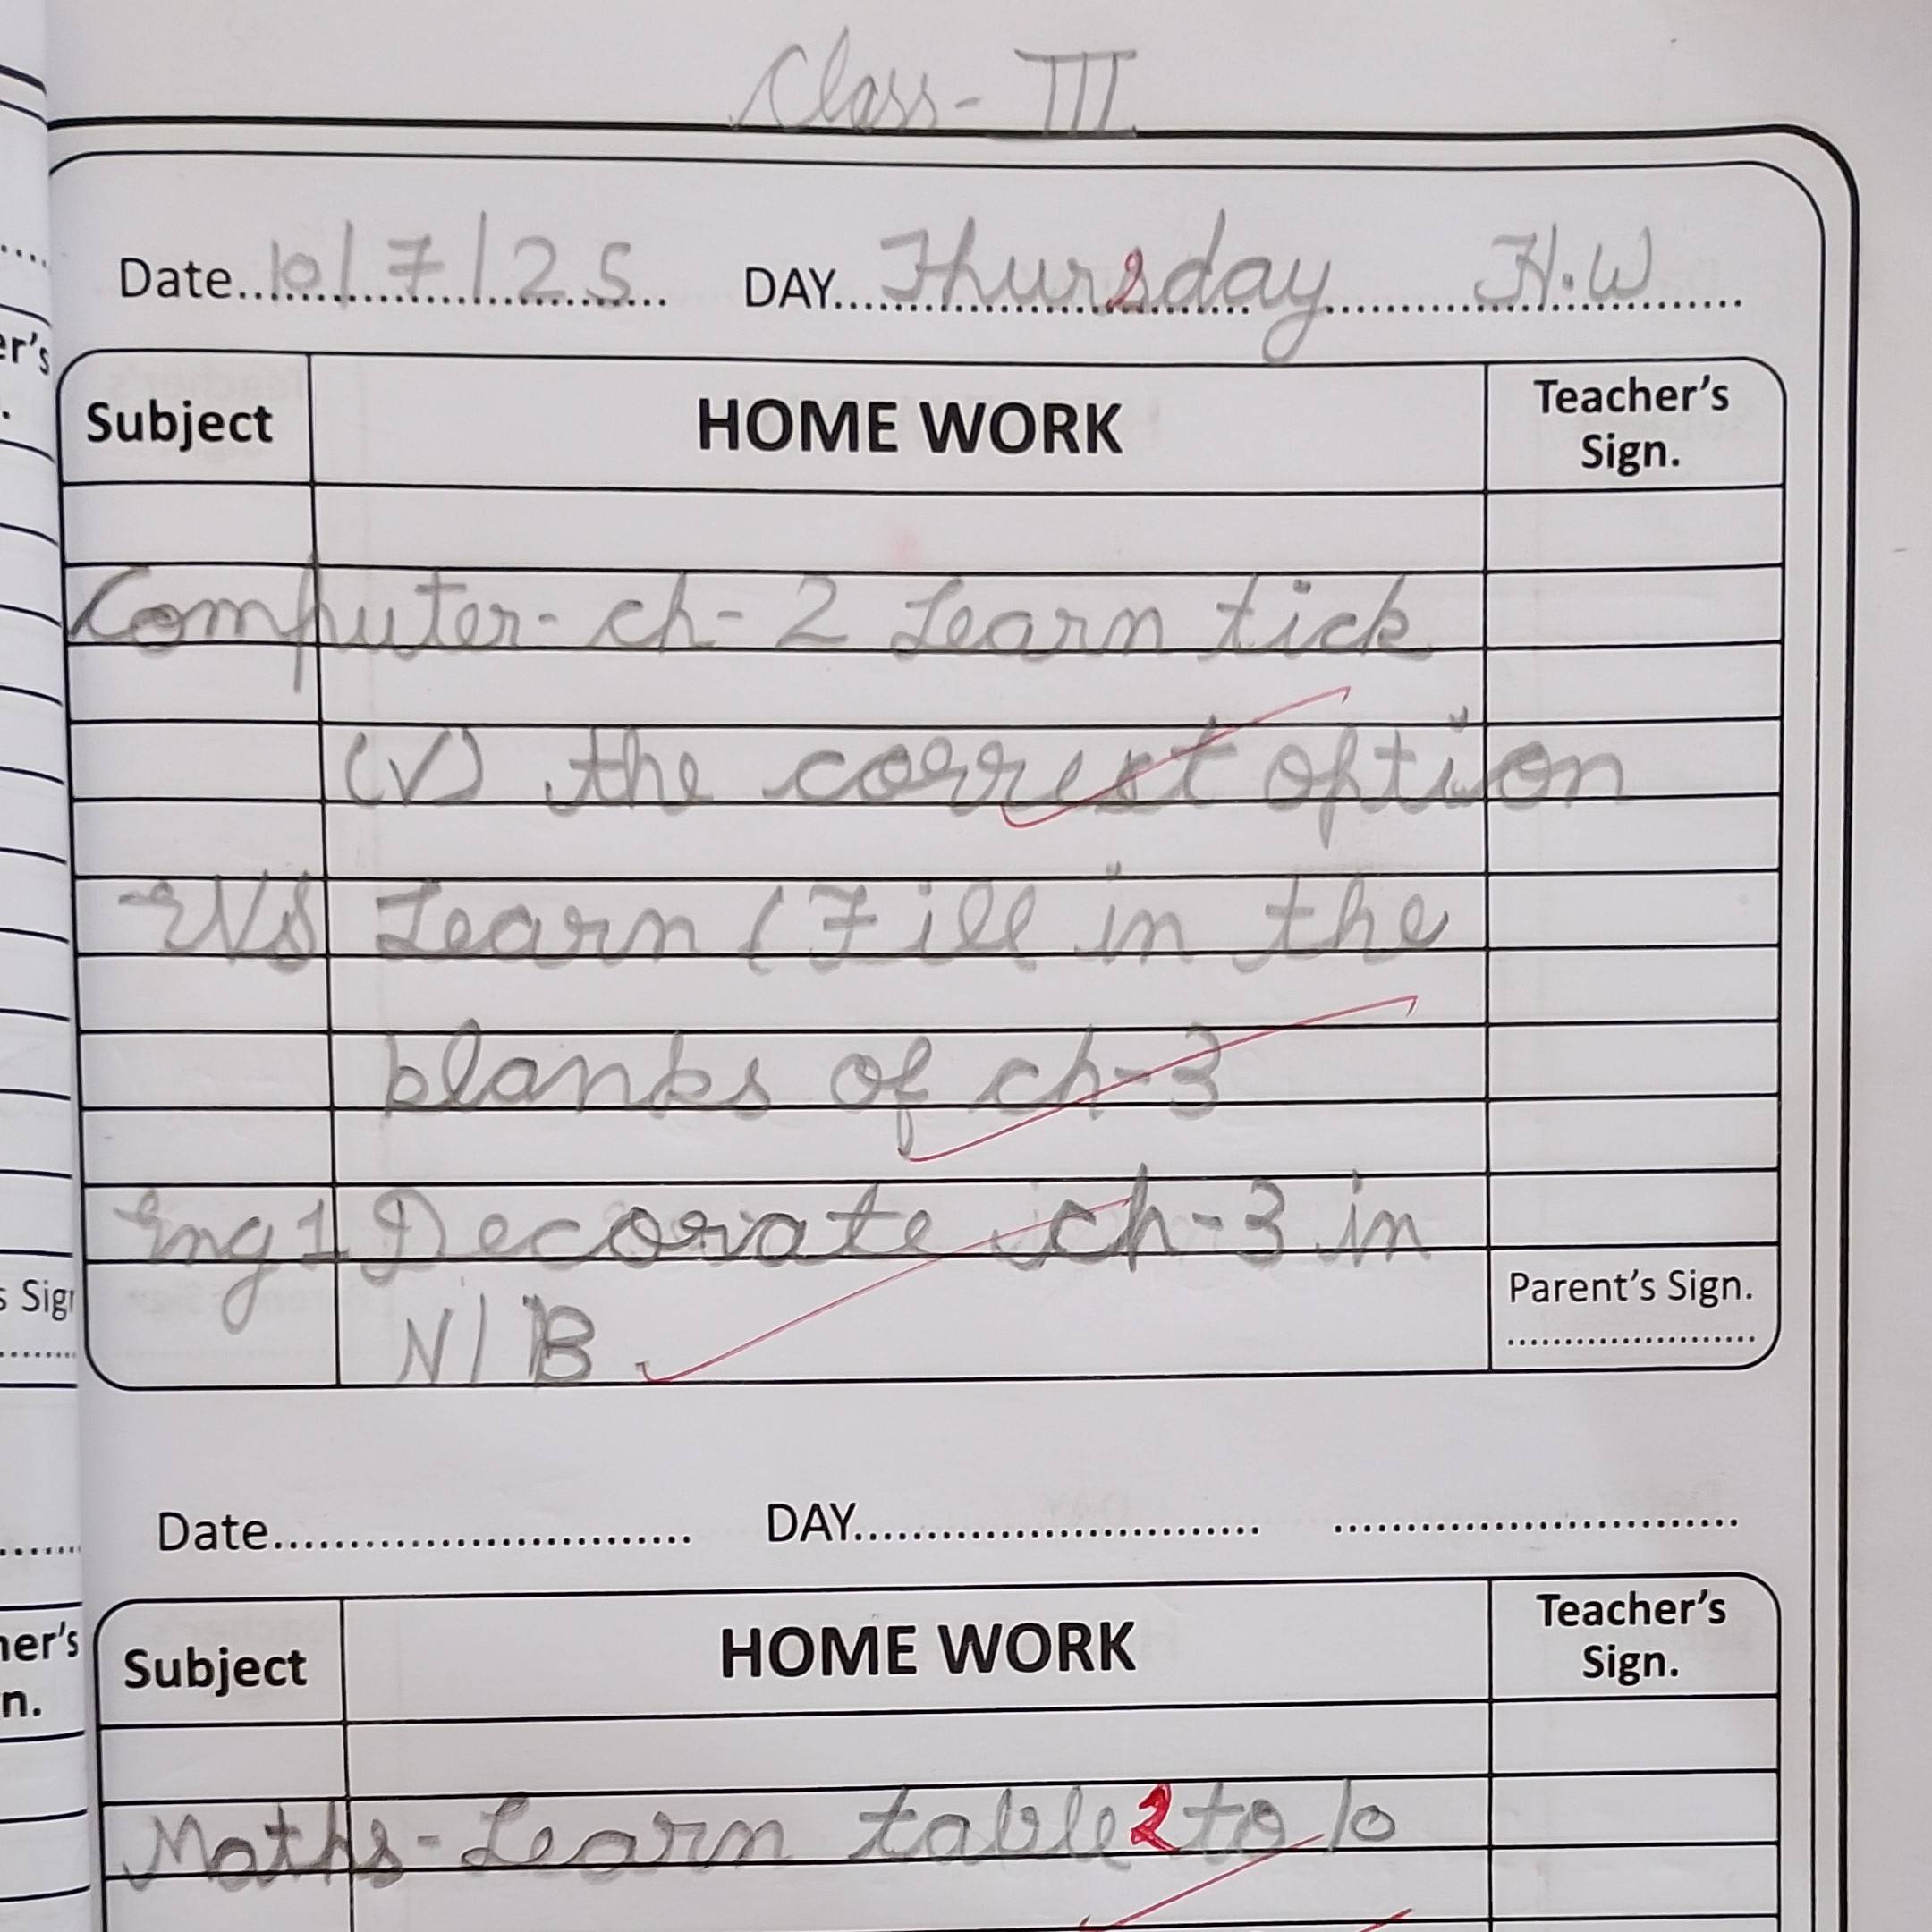 Class- III
Date 10/7/25 DAY Thursday H.W
Subject HOME WORK Teacher's Sign.
Computer- ch- 2 Learn tick
(✓) the correct option
EVS Learn (Fill in the
blanks of ch-3
Eng 1 Decorate ch-3 in
N/B
Parent's Sign.
Date DAY
Subject HOME WORK Teacher's Sign.
Maths- Learn table 2 to 10